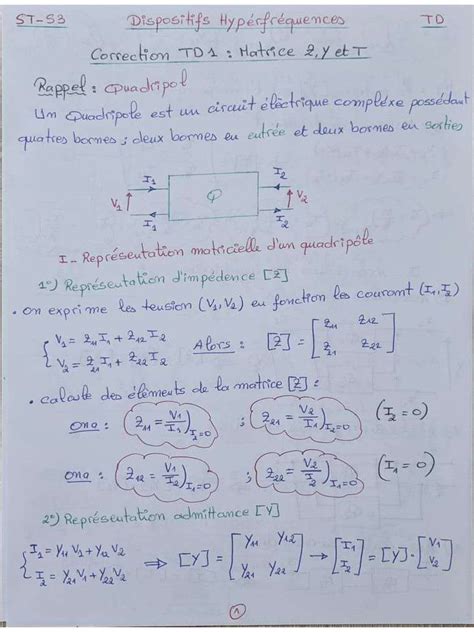 ST-S3 Dispositifs Hypérfréquences TD
Correction TD1 : Matrice Z, Y et T
Rappel : Quadripol
Un Quadripole est un circuit électrique compléxe possédant
quatres bornes ; deux bornes en entrée et deux bornes en sorties
I1 I2
V1 Q V2
I - Représentation matricielle d'un quadripôle
1°) Représentation d'impédence [Z]
• on exprime les tension (V1, V2) en fonction les courant (I1, I2)
{ V1 = Z11 I1 + Z12 I2
V2 = Z21 I1 + Z22 I2 Alors : [Z] = [ Z11 Z12
Z21 Z22 ]
• calcule des éléments de la matrice [Z] :
ona : Z11 = V1/I1)I2=0 ; Z21 = V2/I1)I2=0 (I2 = 0)
ona : Z12 = V1/I2)I1=0 ; Z22 = V2/I2)I1=0 (I1 = 0)
2°) Représentation admittance [Y]
{ I1 = Y11 V1 + Y12 V2
I2 = Y21 V1 + Y22 V2 ⟹ [Y] = [ Y11 Y12
Y21 Y22 ] → [ I1
I2 ] = [Y] · [ V1
V2 ]
1